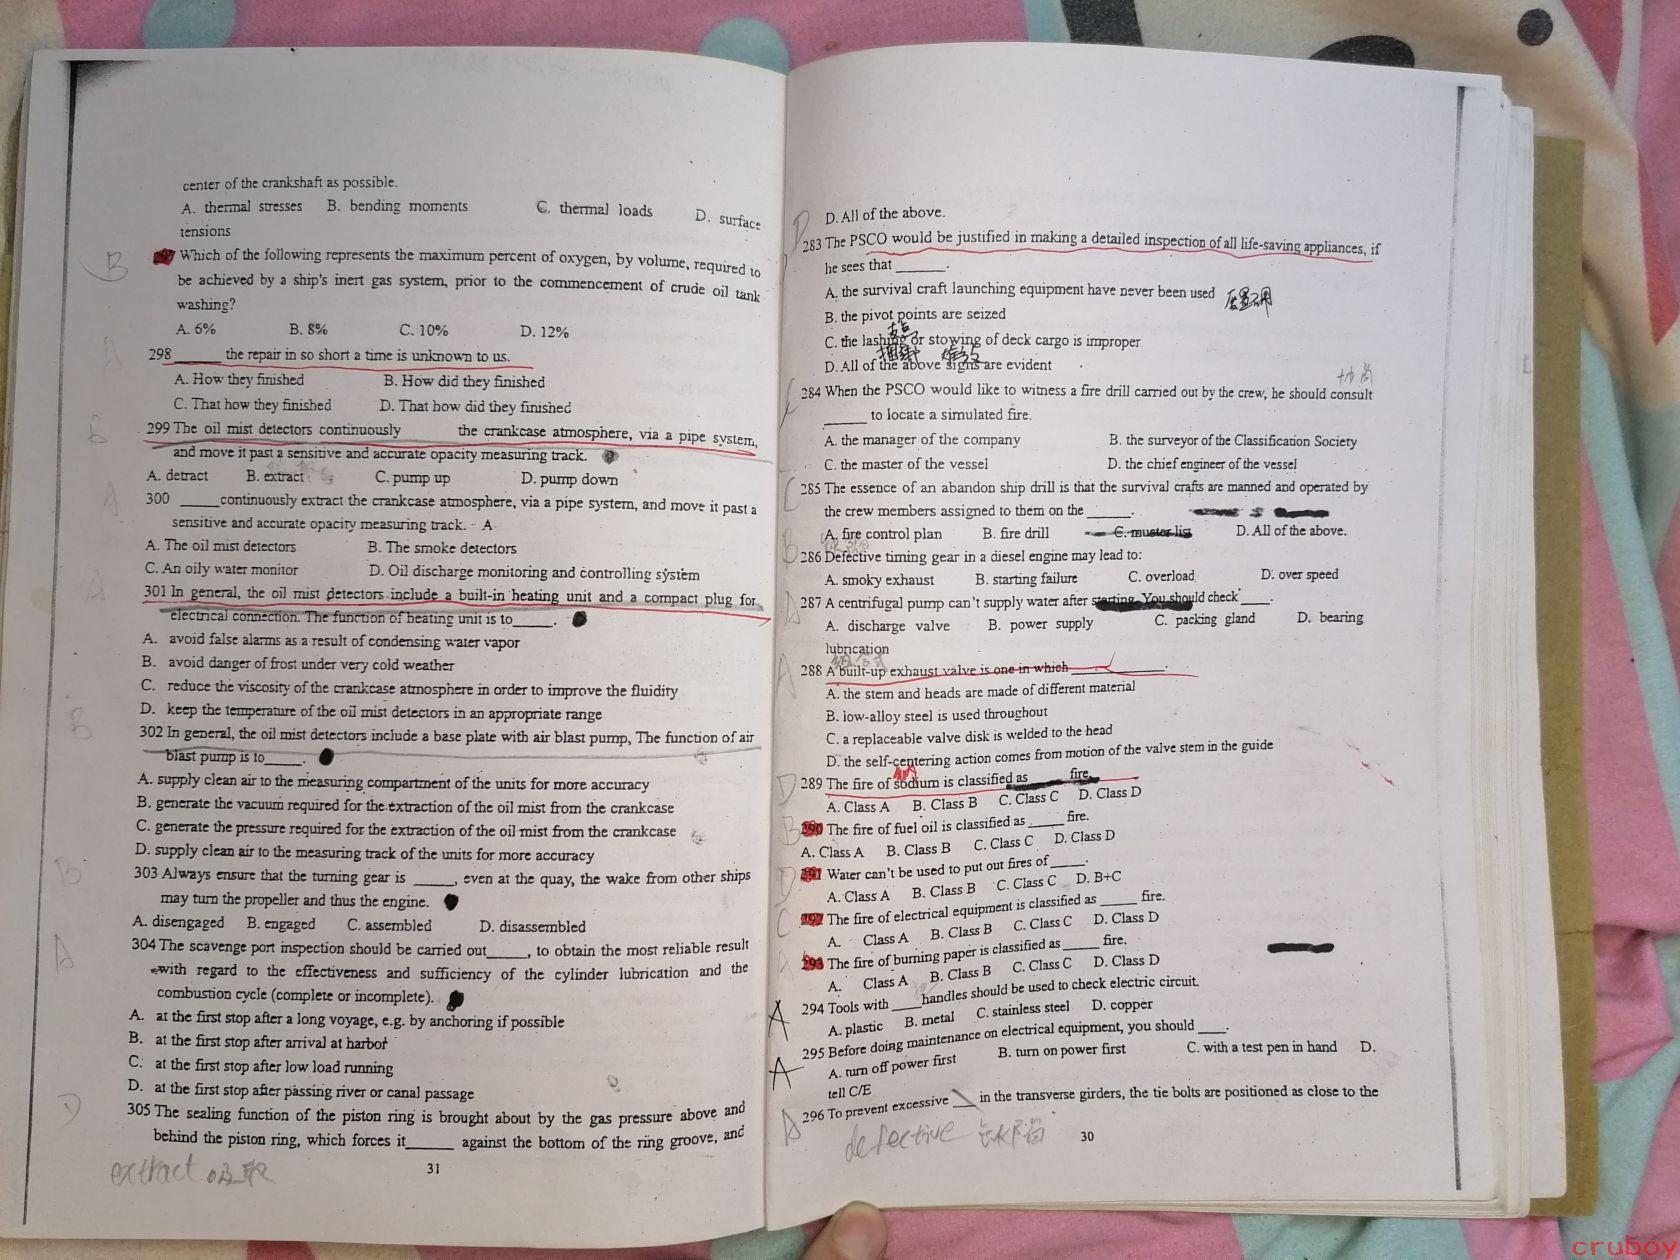 center of the crankshaft as possible.
A. thermal stresses B. bending moments C. thermal loads D. surface
tensions
B
297 Which of the following represents the maximum percent of oxygen, by volume, required to
be achieved by a ship's inert gas system, prior to the commencement of crude oil tank
washing?
A. 6% B. 8% C. 10% D. 12%
A
298______ the repair in so short a time is unknown to us.
A. How they finished B. How did they finished
C. That how they finished D. That how did they finished
B
299 The oil mist detectors continuously the crankcase atmosphere, via a pipe system,
and move it past a sensitive and accurate opacity measuring track.
A. detract B. extract C. pump up D. pump down
A
300 _____continuously extract the crankcase atmosphere, via a pipe system, and move it past a
sensitive and accurate opacity measuring track. - A
A. The oil mist detectors B. The smoke detectors
C. An oily water monitor D. Oil discharge monitoring and controlling system
A
301 In general, the oil mist detectors include a built-in heating unit and a compact plug for
electrical connection. The function of heating unit is to_____.
A. avoid false alarms as a result of condensing water vapor
B. avoid danger of frost under very cold weather
C. reduce the viscosity of the crankcase atmosphere in order to improve the fluidity
D. keep the temperature of the oil mist detectors in an appropriate range
B
302 In general, the oil mist detectors include a base plate with air blast pump, The function of air
blast pump is to_____.
A. supply clean air to the measuring compartment of the units for more accuracy
B. generate the vacuum required for the extraction of the oil mist from the crankcase
C. generate the pressure required for the extraction of the oil mist from the crankcase
D. supply clean air to the measuring track of the units for more accuracy
B
303 Always ensure that the turning gear is _____, even at the quay, the wake from other ships
may turn the propeller and thus the engine.
A. disengaged B. engaged C. assembled D. disassembled
A
304 The scavenge port inspection should be carried out_____, to obtain the most reliable result
with regard to the effectiveness and sufficiency of the cylinder lubrication and the
combustion cycle (complete or incomplete).
A. at the first stop after a long voyage, e.g. by anchoring if possible
B. at the first stop after arrival at harbor
C. at the first stop after low load running
D. at the first stop after passing river or canal passage
D
305 The sealing function of the piston ring is brought about by the gas pressure above and
behind the piston ring, which forces it______ against the bottom of the ring groove, and
extract 吸取
31
D. All of the above.
D
283 The PSCO would be justified in making a detailed inspection of all life-saving appliances, if
he sees that ______.
A. the survival craft launching equipment have never been used
B. the pivot points are seized
支点
C. the lashing or stowing of deck cargo is improper
D. All of the above signs are evident
C
284 When the PSCO would like to witness a fire drill carried out by the crew, he should consult
______ to locate a simulated fire.
A. the manager of the company B. the surveyor of the Classification Society
C. the master of the vessel D. the chief engineer of the vessel
C
285 The essence of an abandon ship drill is that the survival crafts are manned and operated by
the crew members assigned to them on the ______.
A. fire control plan B. fire drill C. muster list D. All of the above.
B
286 Defective timing gear in a diesel engine may lead to:
A. smoky exhaust B. starting failure C. overload D. over speed
A
287 A centrifugal pump can't supply water after starting. You should check____.
A. discharge valve B. power supply C. packing gland D. bearing
lubrication
组合式
A
288 A built-up exhaust valve is one in which ____________.
A. the stem and heads are made of different material
B. low-alloy steel is used throughout
C. a replaceable valve disk is welded to the head
D. the self-centering action comes from motion of the valve stem in the guide
D
289 The fire of sodium is classified as _____ fire.
A. Class A B. Class B C. Class C D. Class D
B
290 The fire of fuel oil is classified as _____ fire.
A. Class A B. Class B C. Class C D. Class D
D
291 Water can't be used to put out fires of_____.
A. Class A B. Class B C. Class C D. B+C
C
292 The fire of electrical equipment is classified as _____ fire.
A. Class A B. Class B C. Class C D. Class D
A
293 The fire of burning paper is classified as _____ fire.
A. Class A B. Class B C. Class C D. Class D
A
294 Tools with ____ handles should be used to check electric circuit.
A. plastic B. metal C. stainless steel D. copper
A
295 Before doing maintenance on electrical equipment, you should ____.
A. turn off power first B. turn on power first C. with a test pen in hand D.
tell C/E
296 To prevent excessive ___ in the transverse girders, the tie bolts are positioned as close to the
defective 有缺陷
30
cruboy